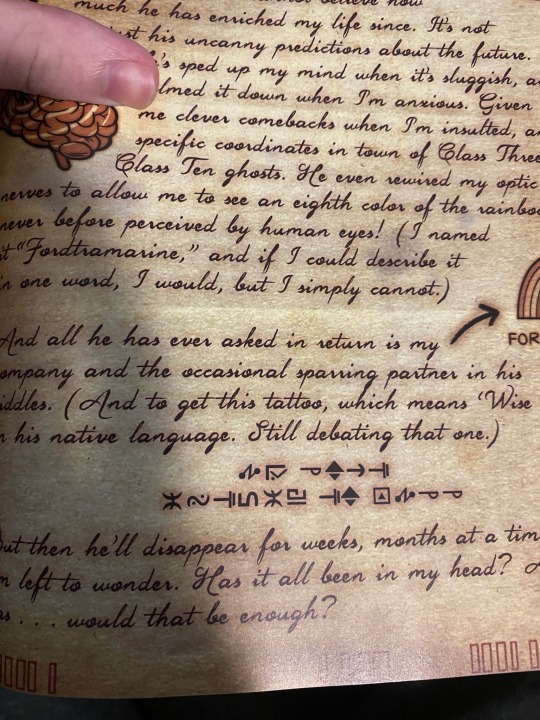 much he has enriched my life since. It's not
his uncanny predictions about the future.
sped up my mind when it's sluggish,
it down when I'm anxious. Given
me clever comebacks when I'm insulted,
specific coordinates in town of Class Three
Class Ten ghosts. He even rewired my optic
nerves to allow me to see an eighth color of the
never before perceived by human eyes! (I named
"Fordtramarine," and if I could describe it
one word, I would, but I simply cannot.)
And all he has ever asked in return is my
and the occasional sparring partner in his
(And to get this tattoo, which means 'Wise
his native language. Still debating that one.)
then he'll disappear for weeks, months at a
left to wonder. Has it all been in my head?
. . . would that be enough?